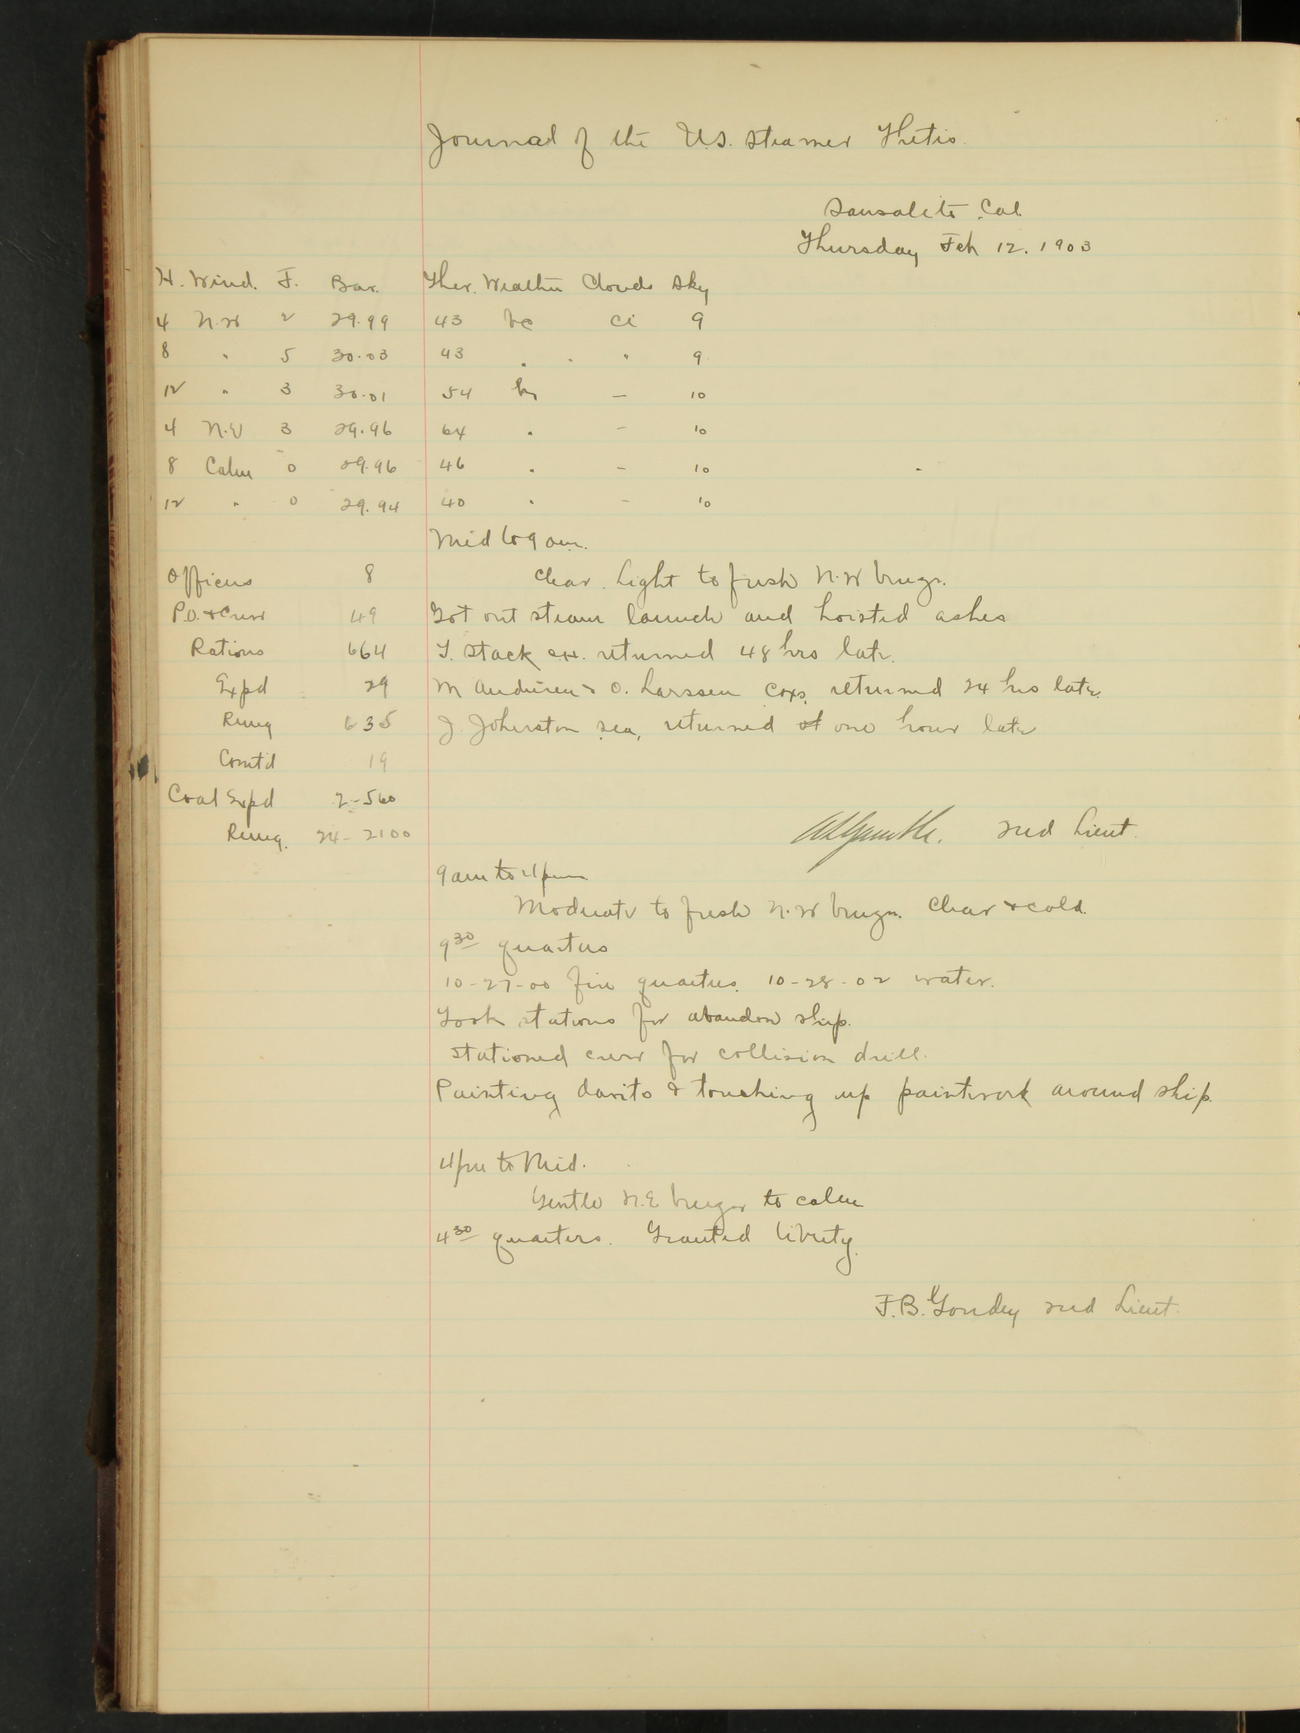 Journal of the U.S. Steamer Thetis.
Sausalito Cal
Thursday Feb 12. 1903
H. Wind. F. Bar. Ther. Weather Clouds Sky
4 N.W 2 29.99 43 bc Ci 9
8 " 5 30.03 43 " " 9
12 " 3 30.01 54 b — 10
4 N.E 3 29.96 64 " — 10
8 Calm 0 29.96 46 " — 10
12 " 0 29.94 40 " — 10
Mid to 9 am.
Officers 8 Clear. Light to fresh N.W breeze.
P.O. & Crew 49 Got out steam launch and hoisted ashes
Rations 664 Stack returned 48 hrs late.
Expd 29 M & O. Larssen Coxs. returned 24 hrs late.
Remg 635 J. Johnston Sea, returned one hour late
Comt'd 19
Coal Expd 2-560
Remg. 24-2100 2nd Lieut.
9 am to 4 pm
Moderate to fresh N.W breeze. Clear & cold.
9 30 quarters
10-27-00 fire quarters. 10-28-02 water.
Took stations for abandon ship.
Stationed crew for collision drill.
Painting davits & touching up paintwork around ship.
4 pm to Mid.
Gentle N.E breeze to calm
4 30 quarters. Granted liberty.
F.B. Goudey 2nd Lieut.